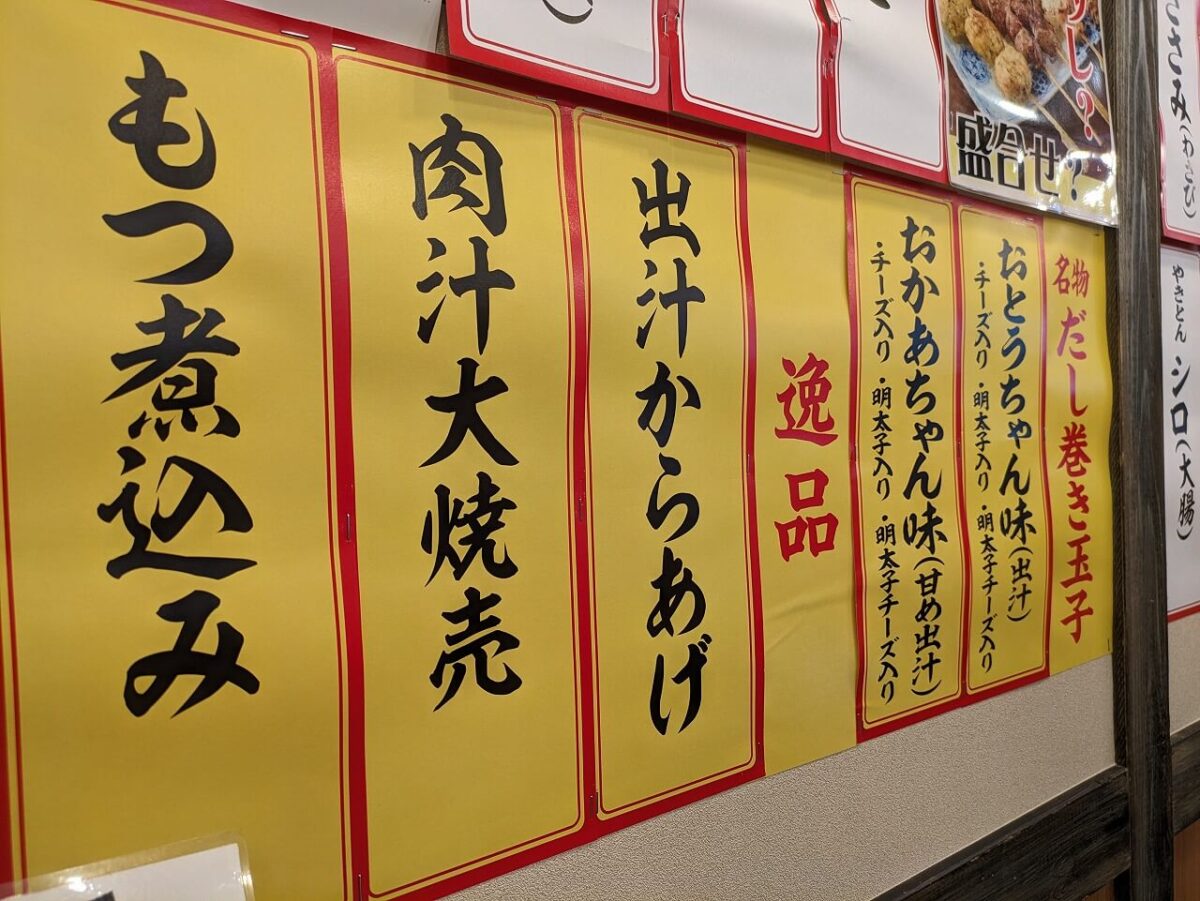 名物 だし巻き玉子
おとうちゃん味(出汁)
・チーズ入り ・明太子入り ・明太子チーズ入り
おかあちゃん味(甘め出汁)
・チーズ入り ・明太子入り ・明太子チーズ入り
逸品
出汁からあげ
肉汁大焼売
もつ煮込み
盛合せ?
ささみ(わさび)
やきとん シロ(大腸)